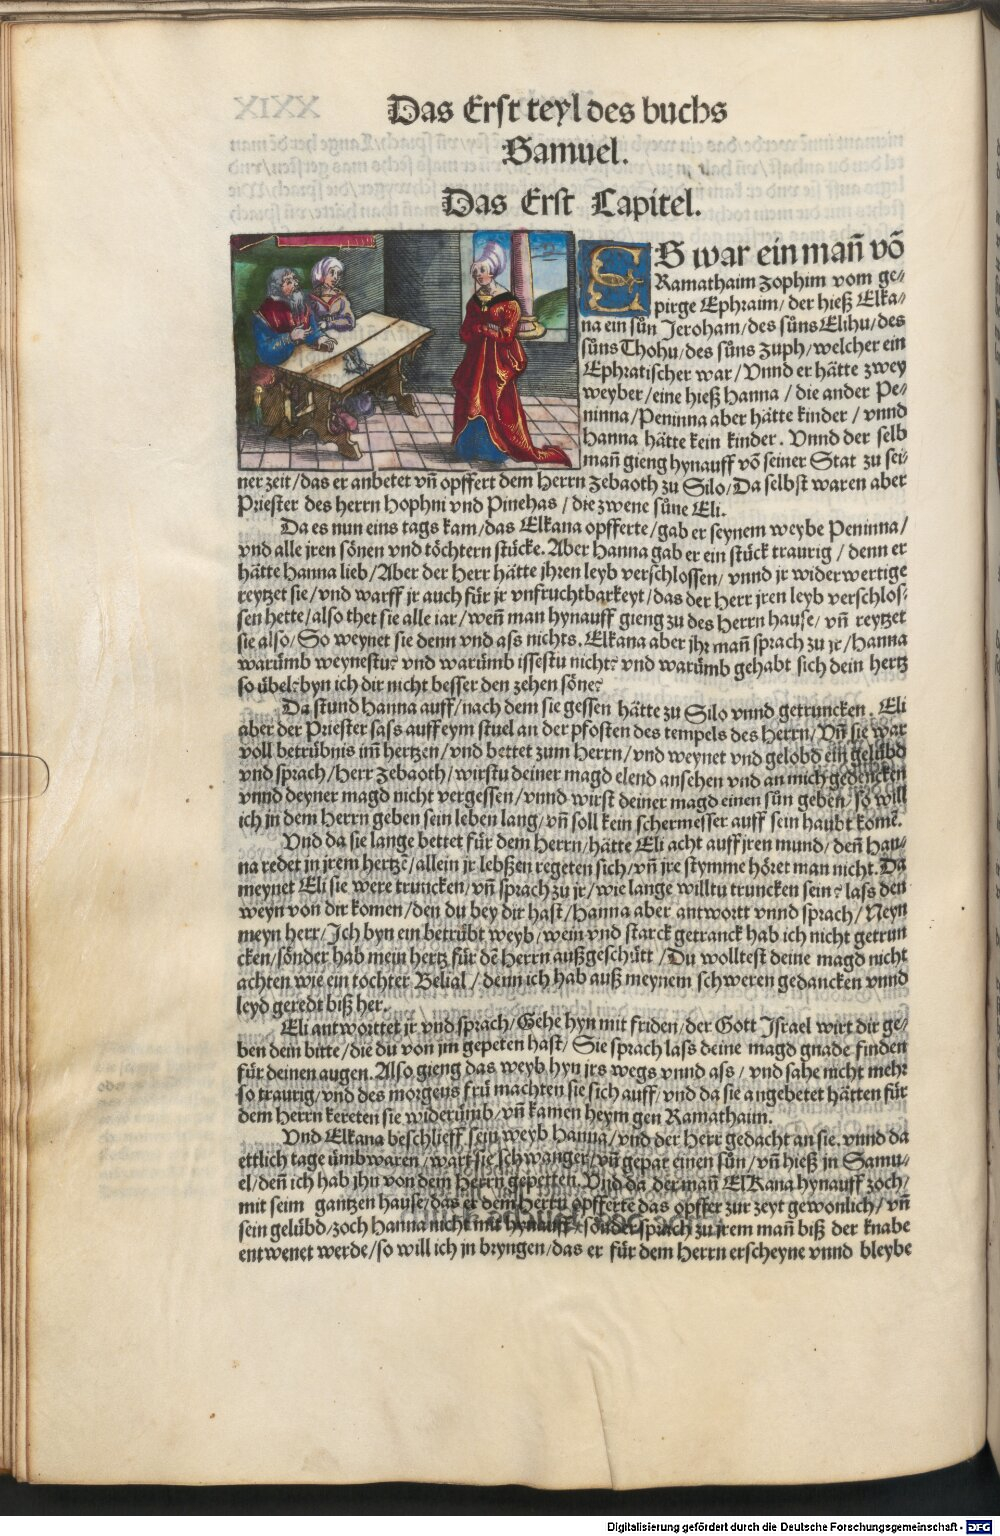 Das Erst teyl des buchs
Samuel.
Das Erst Capitel.
ES war ein mañ võ
Ramathaim Zophim vom ge⸗
pirge Ephraim/ der hieß Elka⸗
na ein sůn Jeroham/des sůns Elihu/des
sůns Thohu/des sůns Zuph/welcher ein
Ephratischer war/ Vnnd er hätte zwey
weyber/eine hieß Hanna / die ander Pe⸗
ninna/Peninna aber hätte kinder / vnnd
Hanna hätte kein kinder. Vnnd der selb
mañ gieng hynauff võ seiner Stat zu sei⸗
ner zeit/das er anbetet vñ opffert dem Herrn Zebaoth zu Silo/Da selbst waren aber
Priester des herrn Hophni vnd Pinehas / die zwene sůne Eli.
Da es nun eins tags kam/das Elkana opfferte/gab er seynem weybe Peninna/
vnd alle jren sönen vnd töchtern stücke. Aber Hanna gab er ein stück traurig / denn er
hätte Hanna lieb/Aber der Herr hätte jhren leyb verschlossen/ vnnd jr widerwertige
reytzet sie/vnd warff jr auch für jr vnfruchtbarkeyt/das der Herr jren leyb verschlos⸗
sen hette/also thet sie alle iar/weñ man hynauff gieng zu des Herrn hause/ vñ reytzet
sie also/So weynet sie denn vnd ass nichts. Elkana aber jhr mañ sprach zu jr/Hanna
warůmb weynestu? vnd warůmb issestu nicht? vnd warůmb gehabt sich dein hertz
so übel? byn ich dir nicht besser den zehen söne?
Da stund Hanna auff/nach dem sie gessen hätte zu Silo vnnd getruncken. Eli
aber der Priester sass auff eym stuel an der pfosten des tempels des Herrn/Vñ sie war
voll betrübnis im̃ hertzen/vnd bettet zum Herrn/vnd weynet vnd gelobd ein gelübd
vnd sprach/Herr Zebaoth/wirstu deiner magd elend ansehen vnd an mich gedencken
vnnd deyner magd nicht vergessen/vnnd wirst deiner magd einen sůn geben/so will
ich jn dem Herrn geben sein leben lang/vñ soll kein schermesser auff sein haubt komẽ.
Vnd da sie lange bettet für dem Herrn/hätte Eli acht auff jren mund/ deñ Han⸗
na redet in jrem hertzẽ/allein jr lebßen regeten sich/vñ jre stymme höret man nicht. Da
meynet Eli sie were truncken/vñ sprach zu jr/wie lange willtu truncken sein? lass den
weyn von dir komen/den du bey dir hast/Hanna aber antwortt vnnd sprach/Neyn
meyn herr/Ich byn ein betrübt weyb/wein vnd starck getranck hab ich nicht getrun
cken/sönder hab mein hertz für dẽ Herrn außgeschütt /Du wolltest deine magd nicht
achten wie ein tochter Belial / denn ich hab auß meynem schweren gedancken vnnd
leyd geredt biß her.
Eli antworttet jr vnd sprach/Gehe hyn mit friden/der Gott Israel wirt dir ge⸗
ben dein bitte/die du von jm gepeten hast/ Sie sprach lass deine magd gnade finden
für deinen augen. Also gieng das weyb hyn jrs wegs vnnd ass/ vnd sahe nicht mehr
so traurig/vnd des morgens frü machten sie sich auff/ vnd da sie angebetet hätten für
dem Herrn kereten sie widerůmb/vñ kamen heym gen Ramathaim.
Vnd Elkana beschlieff sein weyb Hanna/vnd der Herr gedacht an sie. vnnd da
ettlich tage ůmb waren/wart sie schwanger/vñ gepar einen sůn/vñ hieß jn Samu⸗
el/deñ ich hab jhn von dem Herrn gepetten. Vnd da der mañ ElKana hynauff zoch/
mit seim gantzen hause/das er dem Herrn opfferte das opffer zur zeyt gewonlich/ vñ
sein gelübd/zoch Hanna nicht mit hynauff/sonder sprach zu jrem mañ biß der knabe
entwenet werde/so will ich jn bryngen/das er für dem Herrn erscheyne vnnd bleybe
Digitalisierung gefördert durch die Deutsche Forschungsgemeinschaft - DFG